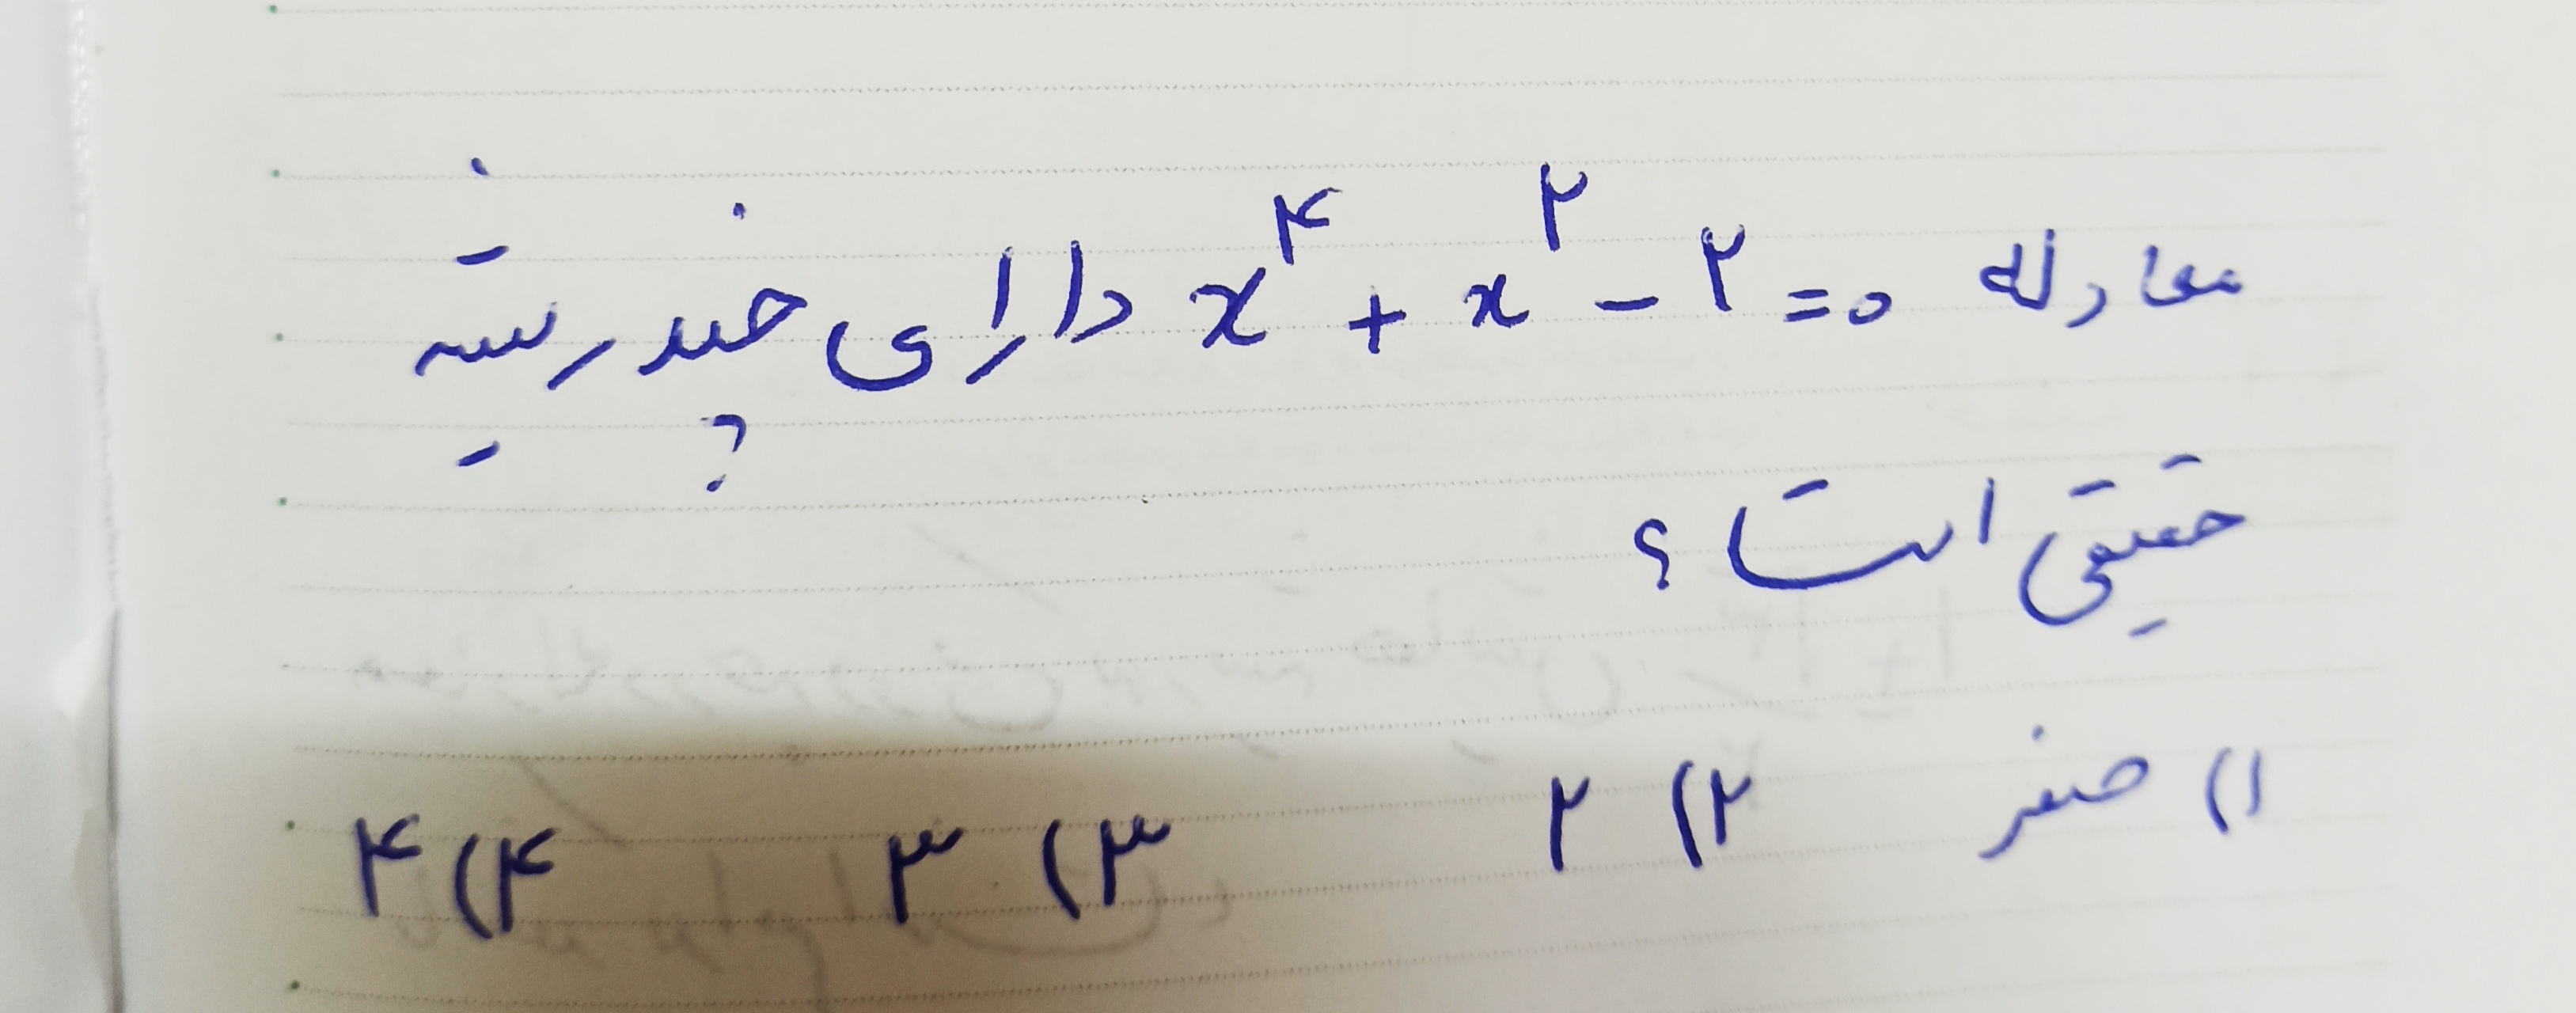 معادله x^۴ + x^۲ - ۲ = ۰ دارای چند ریشه
حقیقی است؟
۱) صفر ۲) ۲ ۳) ۳ ۴) ۴